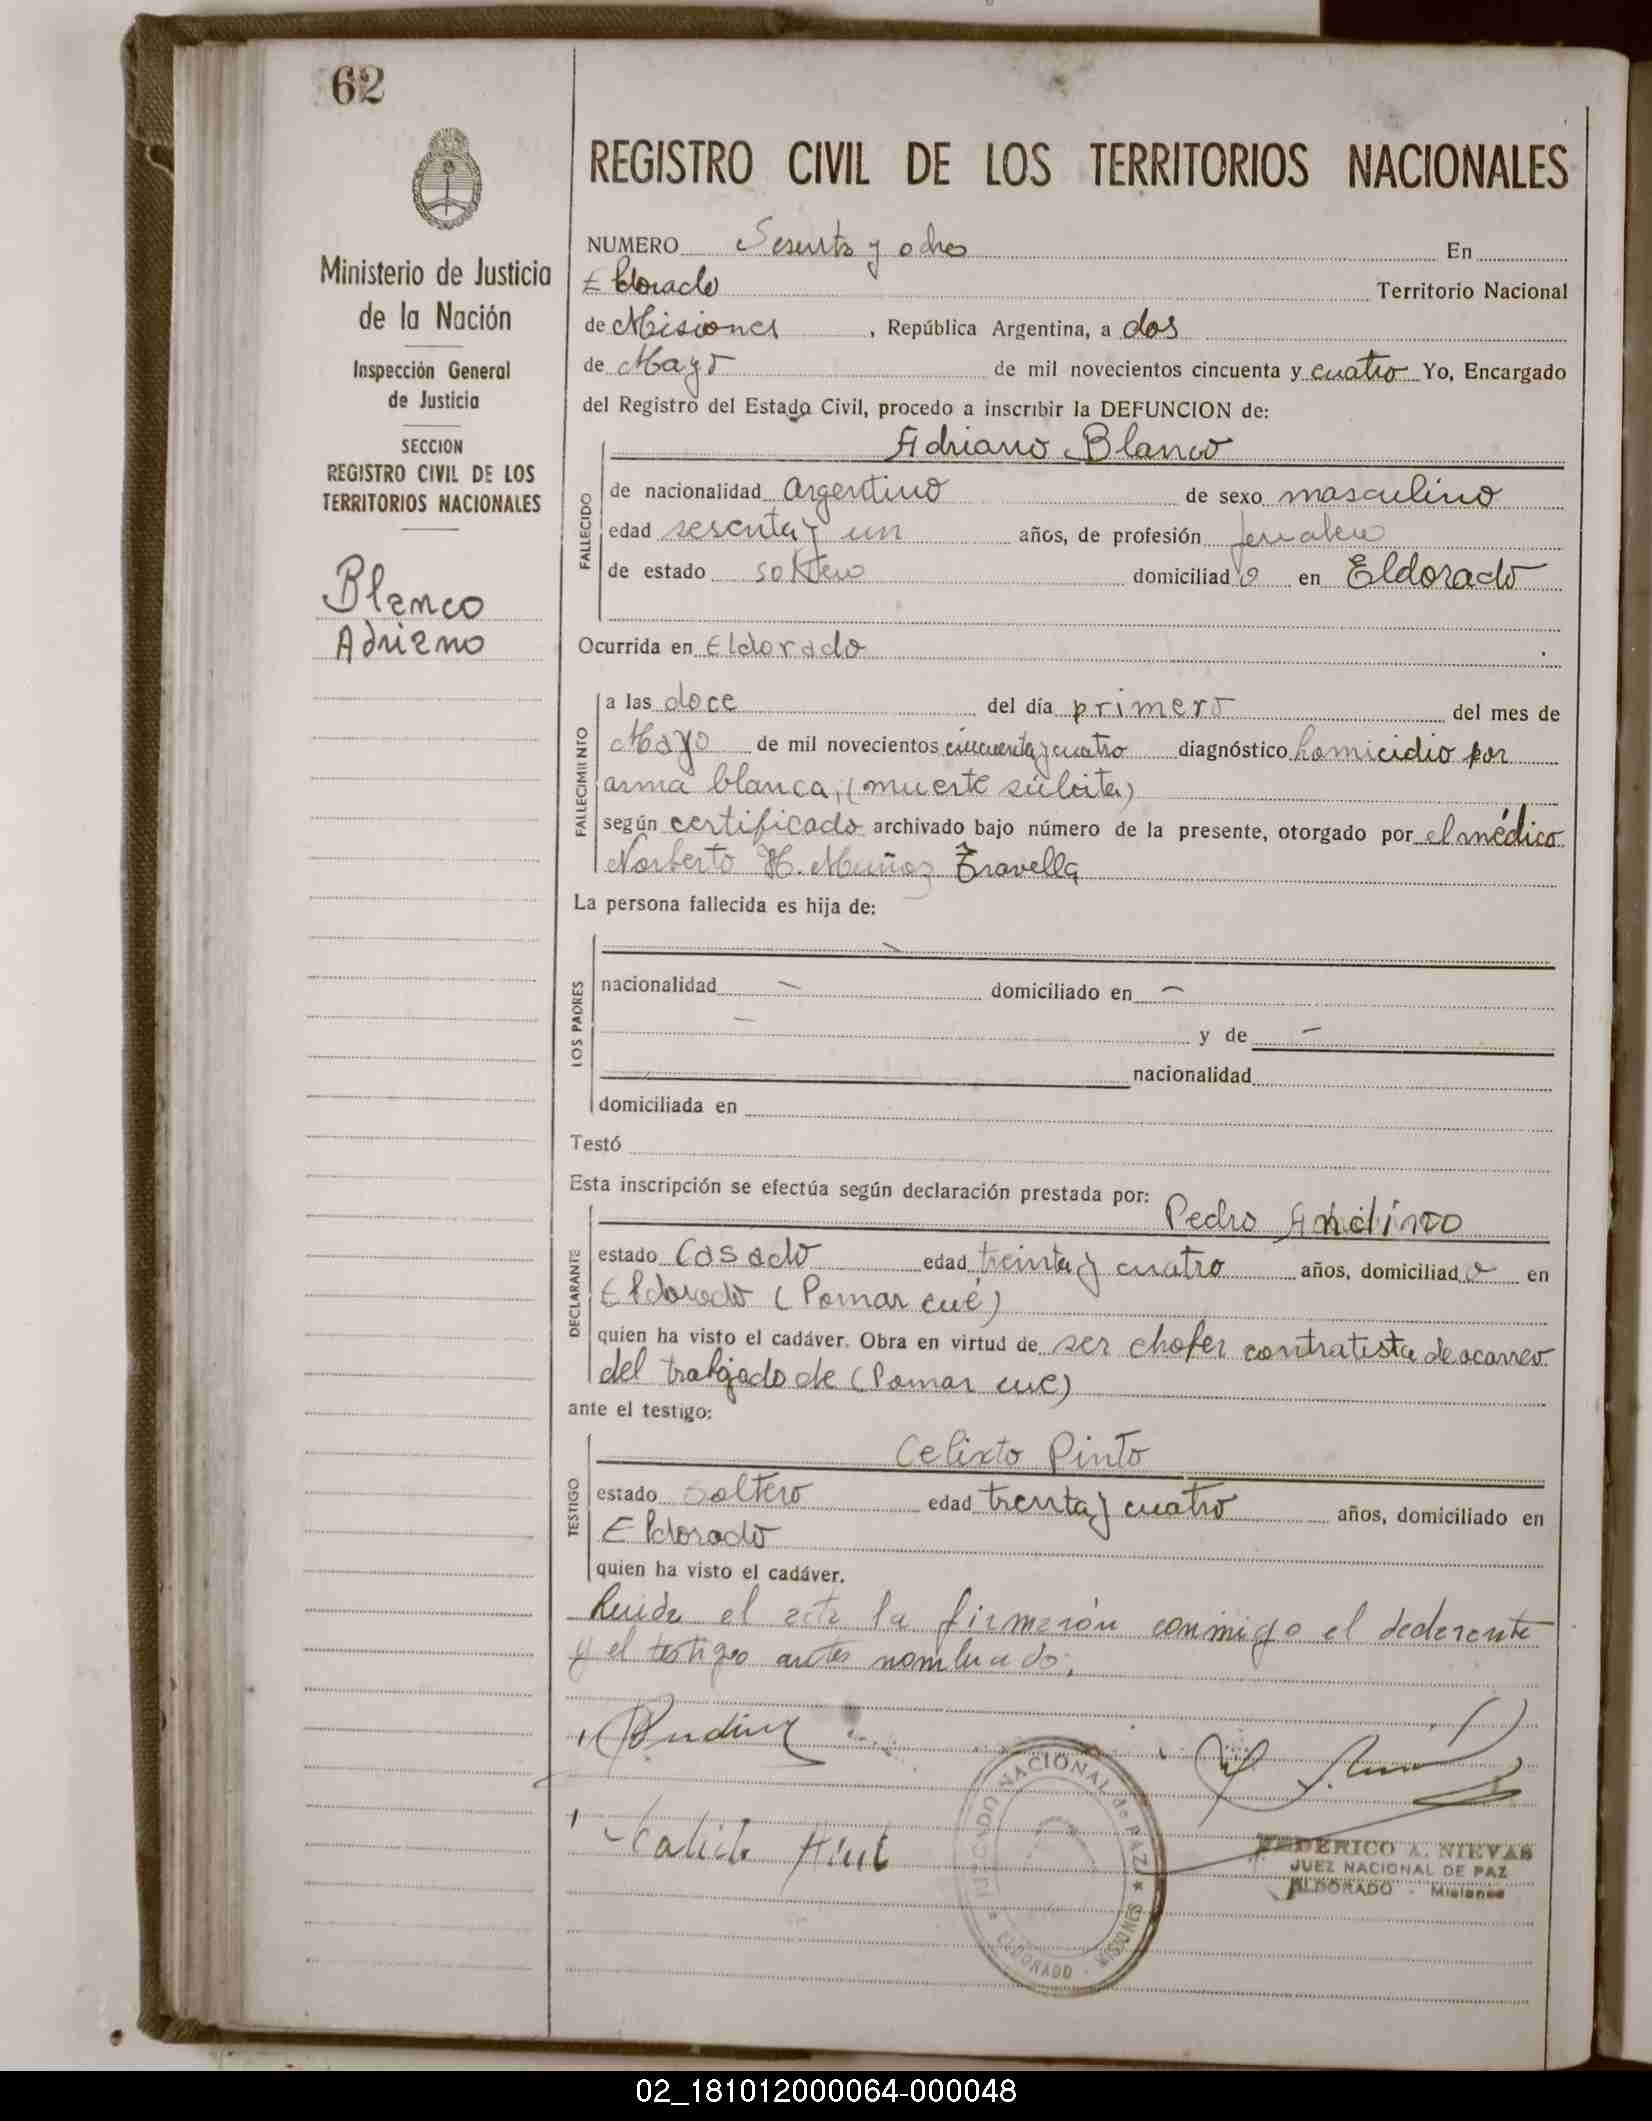 62
REGISTRO CIVIL DE LOS TERRITORIOS NACIONALES
Ministerio de Justicia
de la Nación
Inspección General
de Justicia
SECCION
REGISTRO CIVIL DE LOS
TERRITORIOS NACIONALES
Blanco
Adriano
NUMERO Sesenta y ocho En
Eldorado Territorio Nacional
de Misiones, República Argentina, a dos
de Mayo de mil novecientos cincuenta y cuatro Yo, Encargado
del Registro del Estado Civil, procedo a inscribir la DEFUNCION de:
Adriano Blanco
FALLECIDO
de nacionalidad argentino de sexo masculino
edad sesenta y un años, de profesión jornalero
de estado soltero domiciliado en Eldorado
Ocurrida en Eldorado
FALLECIMIENTO
a las doce del día primero del mes de
Mayo de mil novecientos cincuenta y cuatro diagnóstico homicidio por
arma blanca, (muerte súbita)
según certificado archivado bajo número de la presente, otorgado por el médico
Norberto H. Muñoz Travella
La persona fallecida es hija de:
LOS PADRES
nacionalidad — domiciliado en —
— y de —
nacionalidad
domiciliada en
Testó
Esta inscripción se efectúa según declaración prestada por:
Pedro
DECLARANTE
estado Casado edad treinta y cuatro años, domiciliado en
Eldorado (Pomar cué)
quien ha visto el cadáver. Obra en virtud de ser chofer contratista de acarreo
del trabajado de (Pomar cué)
ante el testigo:
Celixto Pinto
TESTIGO
estado soltero edad trenta y cuatro años, domiciliado en
Eldorado
quien ha visto el cadáver.
Leida el acta la firmarón conmigo el declarante
y el testigo antes nombrado.
JUZGADO NACIONAL de PAZ ★ MISIONES - ELDORADO ★
FEDERICO A. NIEVAS
JUEZ NACIONAL DE PAZ
ELDORADO - Misiones
02_181012000064-000048